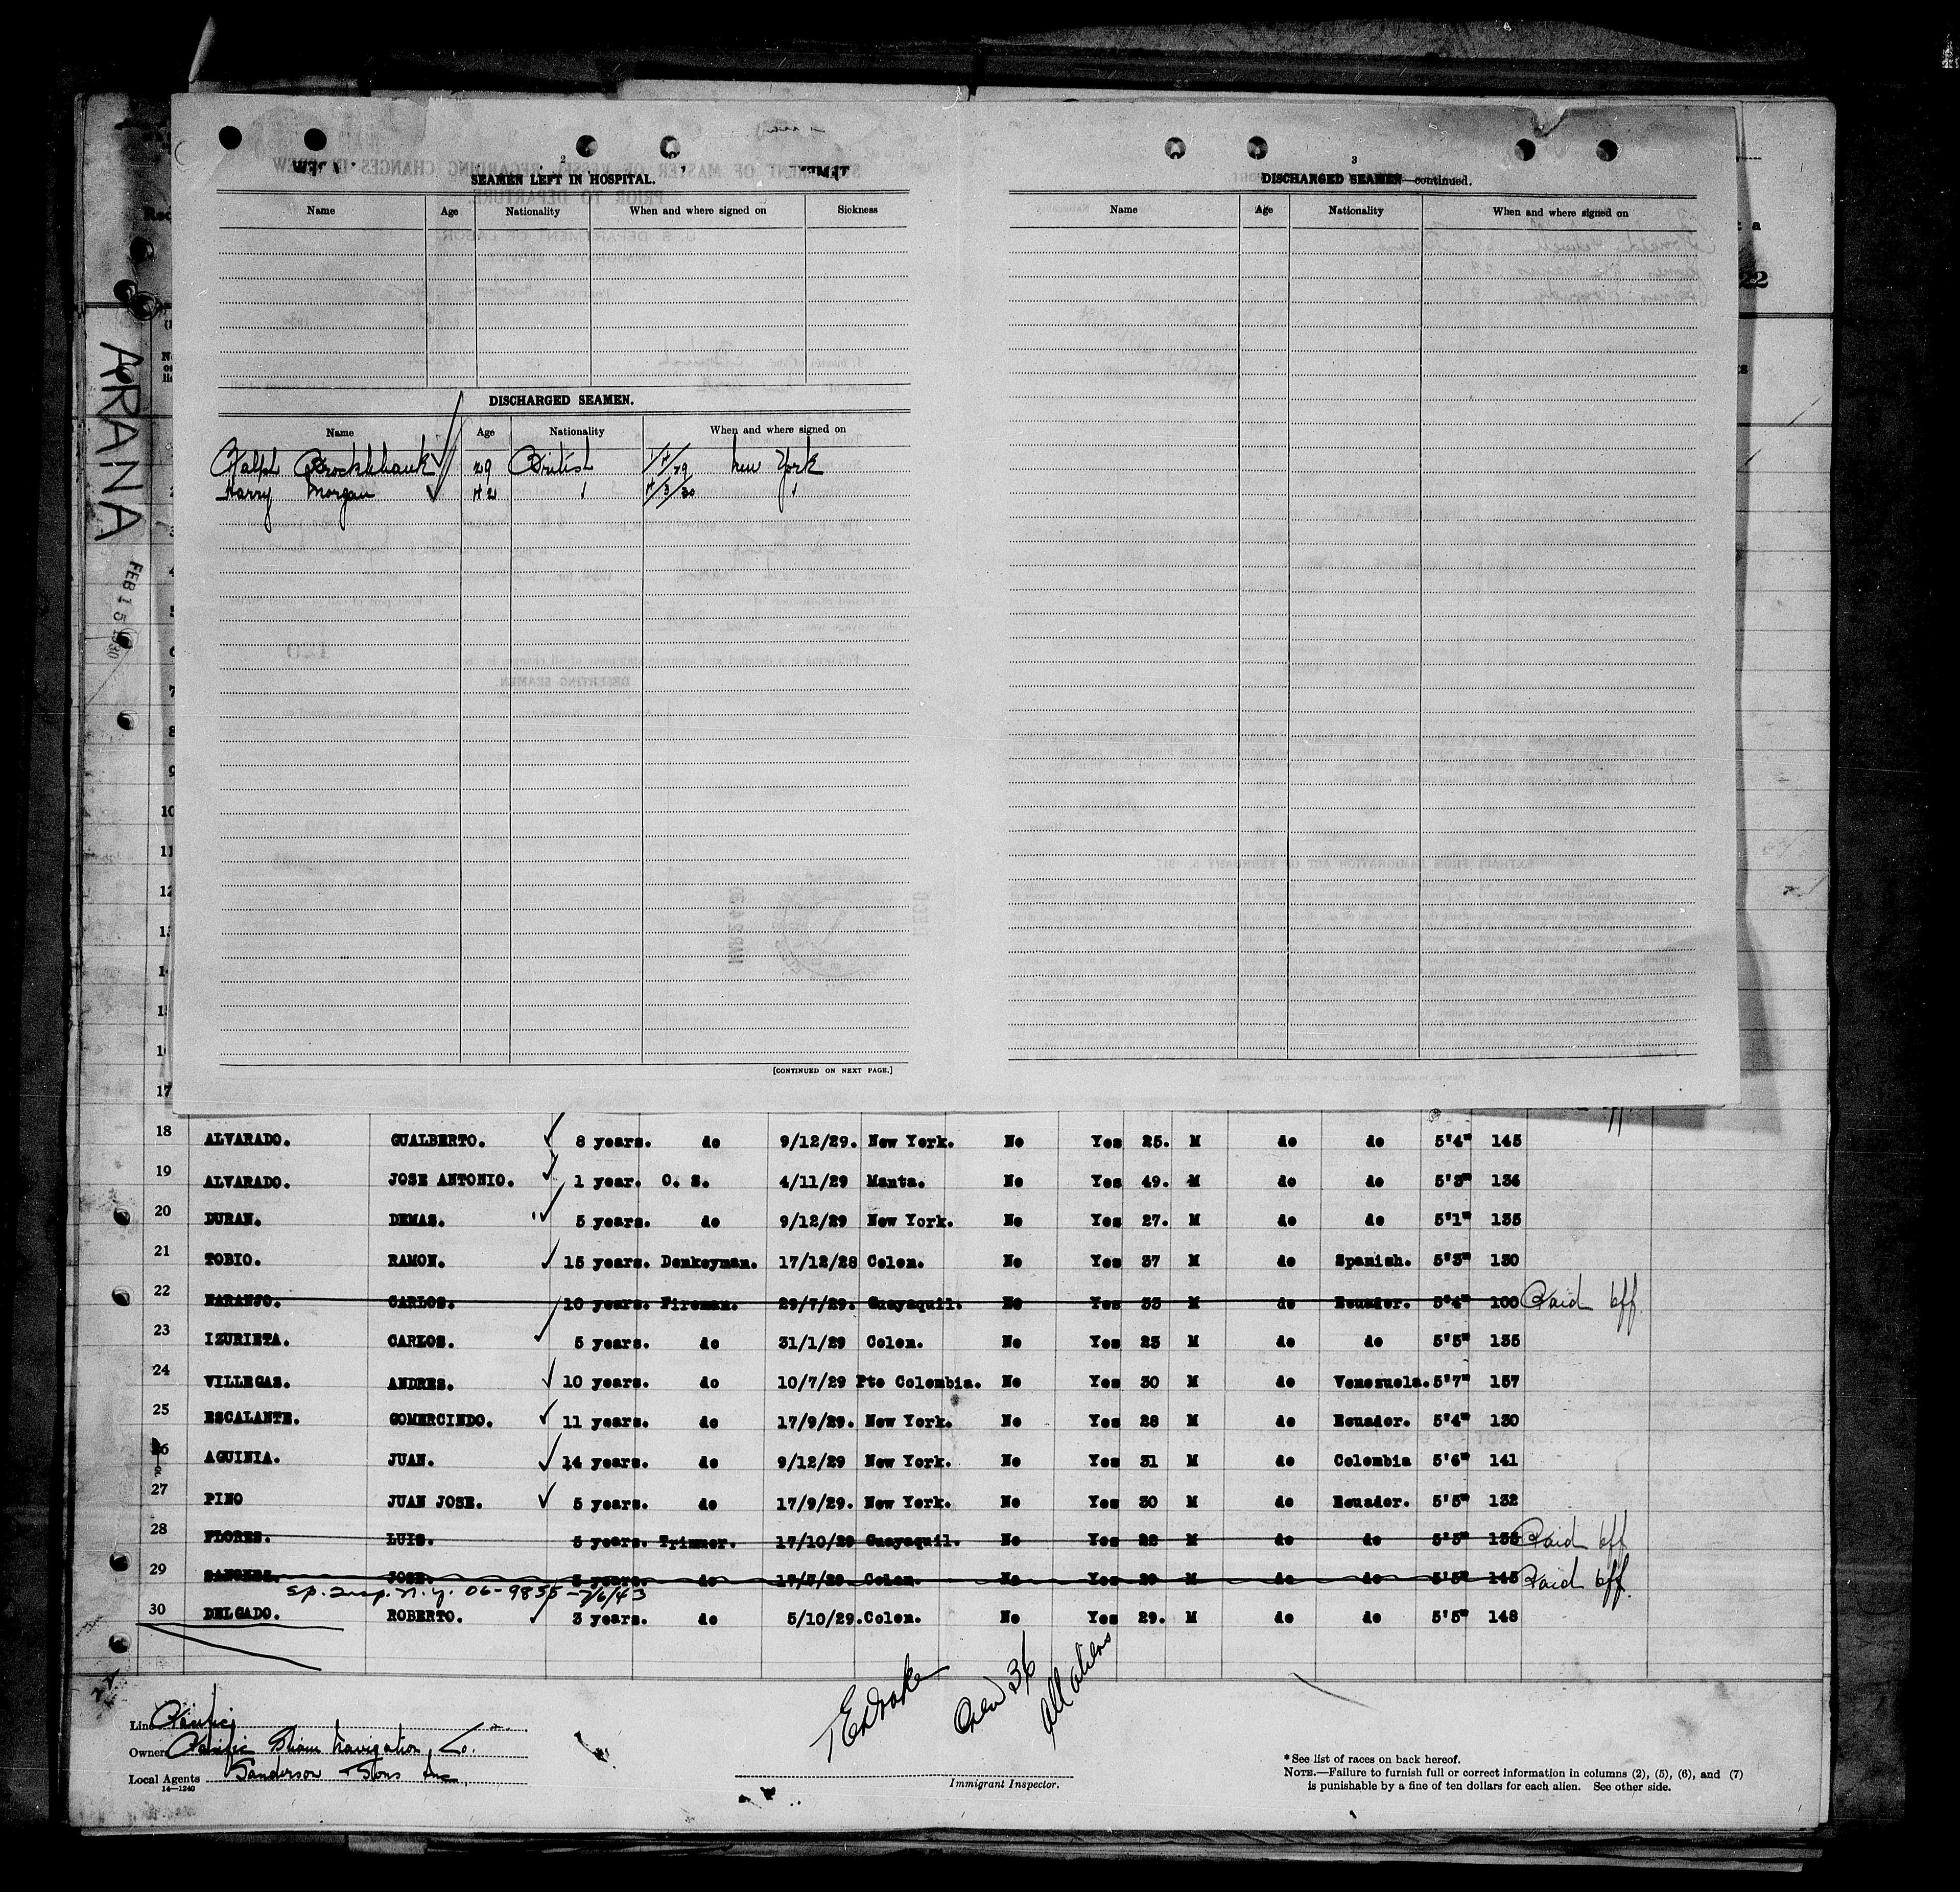 2
SEAMEN LEFT IN HOSPITAL.
Name Age Nationality When and where signed on Sickness
DISCHARGED SEAMEN.
Name Age Nationality When and where signed on
Ralph Brocklebank 29 British New York
Harry Morgan 42 " 4/3/30 "
[CONTINUED ON NEXT PAGE.]
3
DISCHARGED SEAMEN—continued.
Name Age Nationality When and where signed on
22
ARANA
FEB 15 1930
2
3
4
5
6
7
8
9
10
11
12
17
18 ALVARADO. GUALBERTO. 8 years. do 9/12/29. New York. No Yes 25. M do do 5'4" 145
19 ALVARADO. JOSE ANTONIO. 1 year. O. S. 4/11/29 Manta. No Yes 49. M do do 5'3" 136
20 DURAN. DEMAS. 5 years. do 9/12/29 New York. No Yes 27. M do do 5'1" 135
21 TOBIO. RAMON. 15 years. Donkeyman. 17/12/28 Colon. No Yes 37 M do Spanish. 5'3" 130
22 NARANJO. CARLOS. 10 years. Fireman. 29/7/29. Guayaquil. No Yes 33 M do Ecuador. 5'4" 100 Paid off
23 IZURIETA. CARLOS. 5 years. do 31/1/29 Colon. No Yes 23 M do do 5'5" 135
24 VILLEGAS. ANDRES. 10 years. do 10/7/29 Pto Colombia. No Yes 30 M do Venezuela. 5'7" 157
25 ESCALANTE. GOMERCINDO. 11 years. do 17/9/29. New York. No Yes 28 M do Ecuador. 5'4" 130
26 AGUINIA. JUAN. 14 years. do 9/12/29 New York. No Yes 31 M do Colombia 5'6" 141
27 PINO JUAN JOSE. 5 years. do 17/9/29. New York. No Yes 30 M do Ecuador. 5'5" 132
28 FLORES. LUIS. 5 years. Trimmer. 17/10/29 Guayaquil. No Yes 22 M do do 5'5" Paid off
29 JOSE. do Colon. No Yes 29 M do do 5'5" 145 Paid off
N.Y. 06-9855 - 7/6/43
30 DELGADO. ROBERTO. 3 years. do 5/10/29. Colon. No Yes 29. M do do 5'5" 148
Crew 36
All aliens
Line Pacific
Owners Pacific Steam Navigation Co.
Local Agents Sanderson & Sons Inc
14—1240
Immigrant Inspector.
*See list of races on back hereof.
NOTE.—Failure to furnish full or correct information in columns (2), (5), (6), and (7)
is punishable by a fine of ten dollars for each alien. See other side.